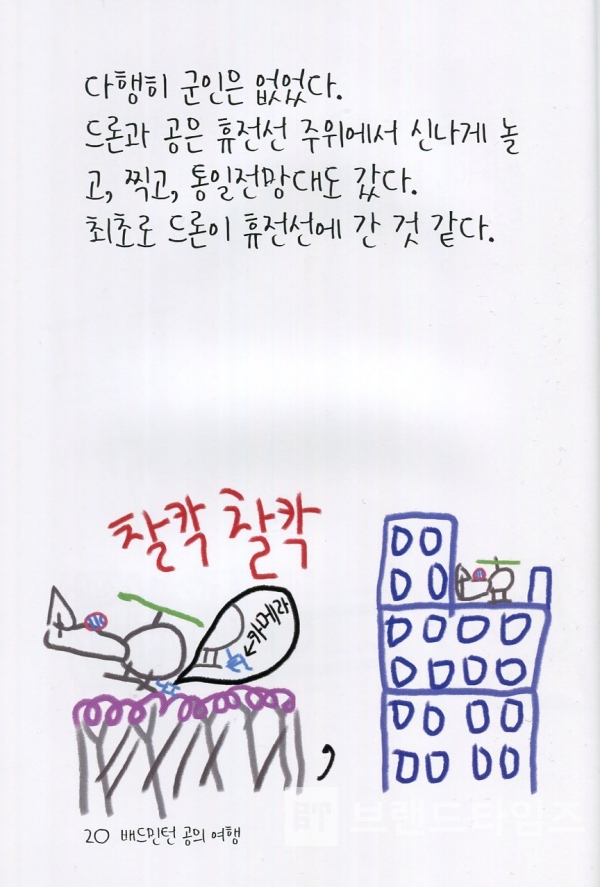 다행히 군인은 없었다.
드론과 공은 휴전선 주위에서 신나게 놀
고, 찍고, 통일전망대도 갔다.
최초로 드론이 휴전선에 간 것 같다.
찰칵 찰칵
←카메라
20 배드민턴 공의 여행
BT 브랜드타임즈